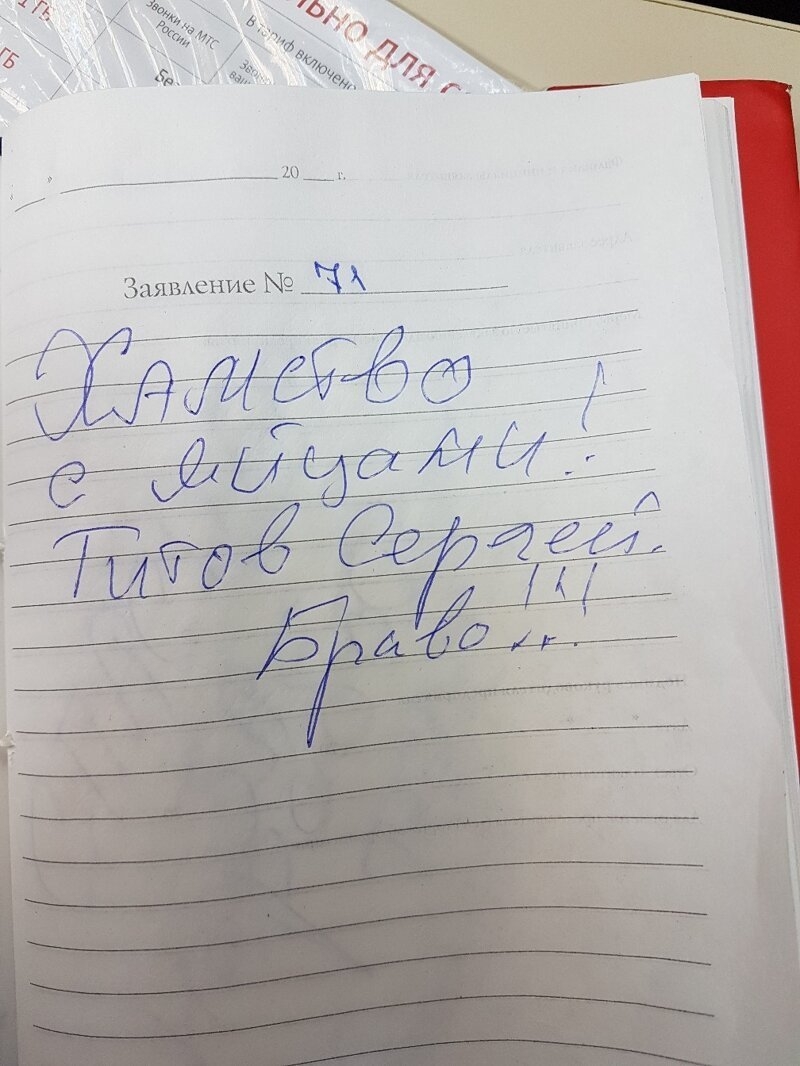 1 ГБ
ГБ
Звонки на МТС
России
Без
В тариф включено
ЛЬНО ДЛЯ С
" " 20 г.
Заявление № 71
Хамство
с яйцами!
Титов Сергей.
Браво!!!